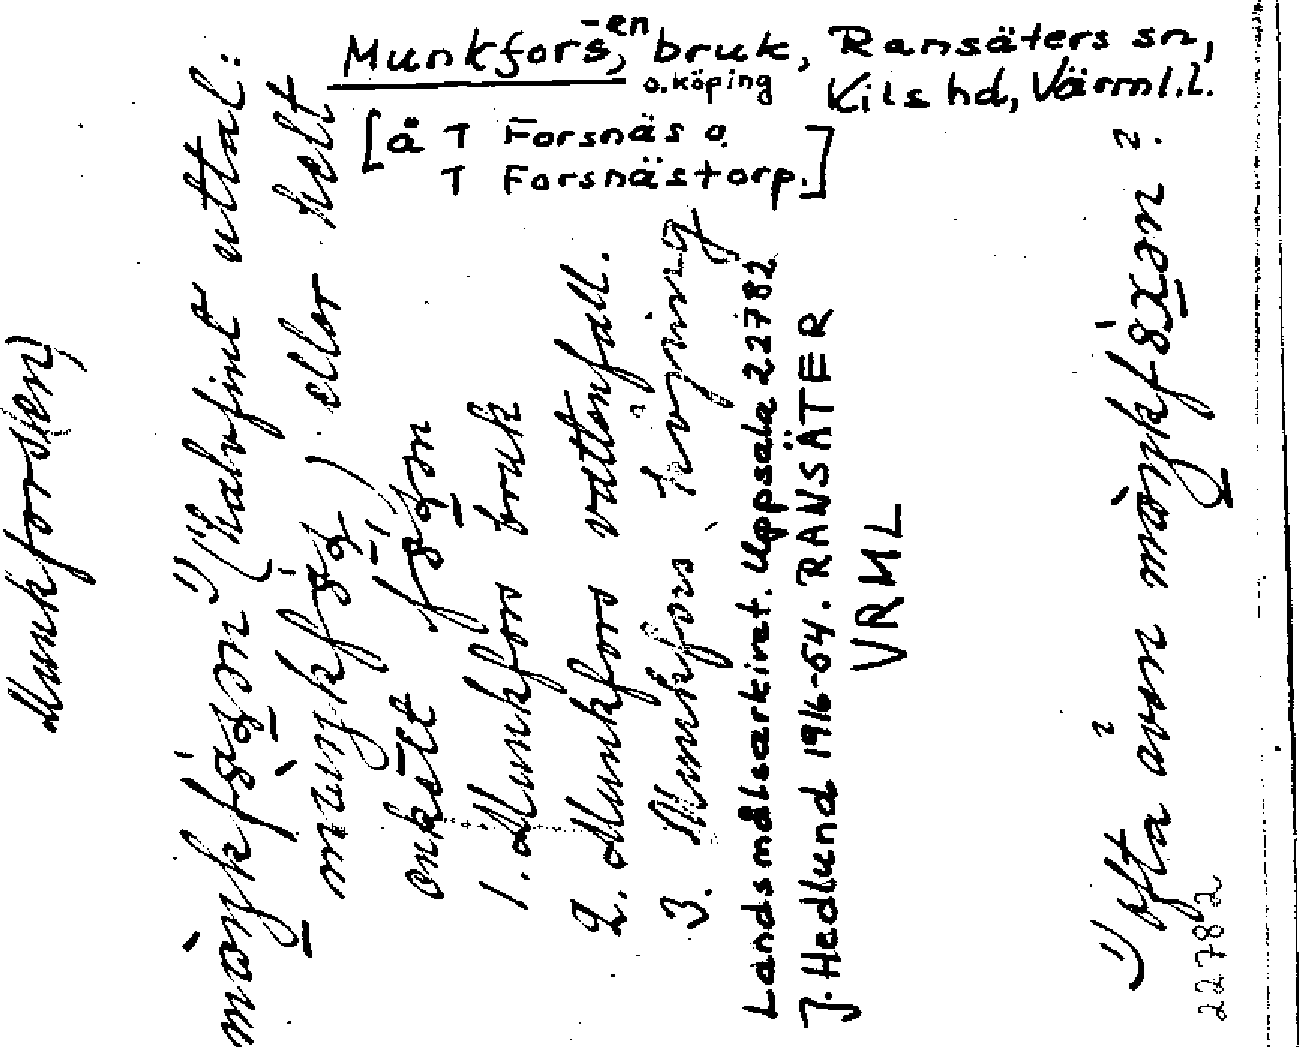 Munkfors, -en bruk, Ransäters sn,
o. köping Kils hd, Värml. l.
[å T Forsnäs o.
T Forsnästorp.]
Munkfors(en)
("halvfint" uttal:
eller helt
enkelt
1. Munkfors bruk
2. Munkfors vattenfall.
3. Munkfors
Landsmålsarkivet. Uppsala 22782
J. Hedlund 1916-54. RANSÄTER
VRML
1) ofta även
22782